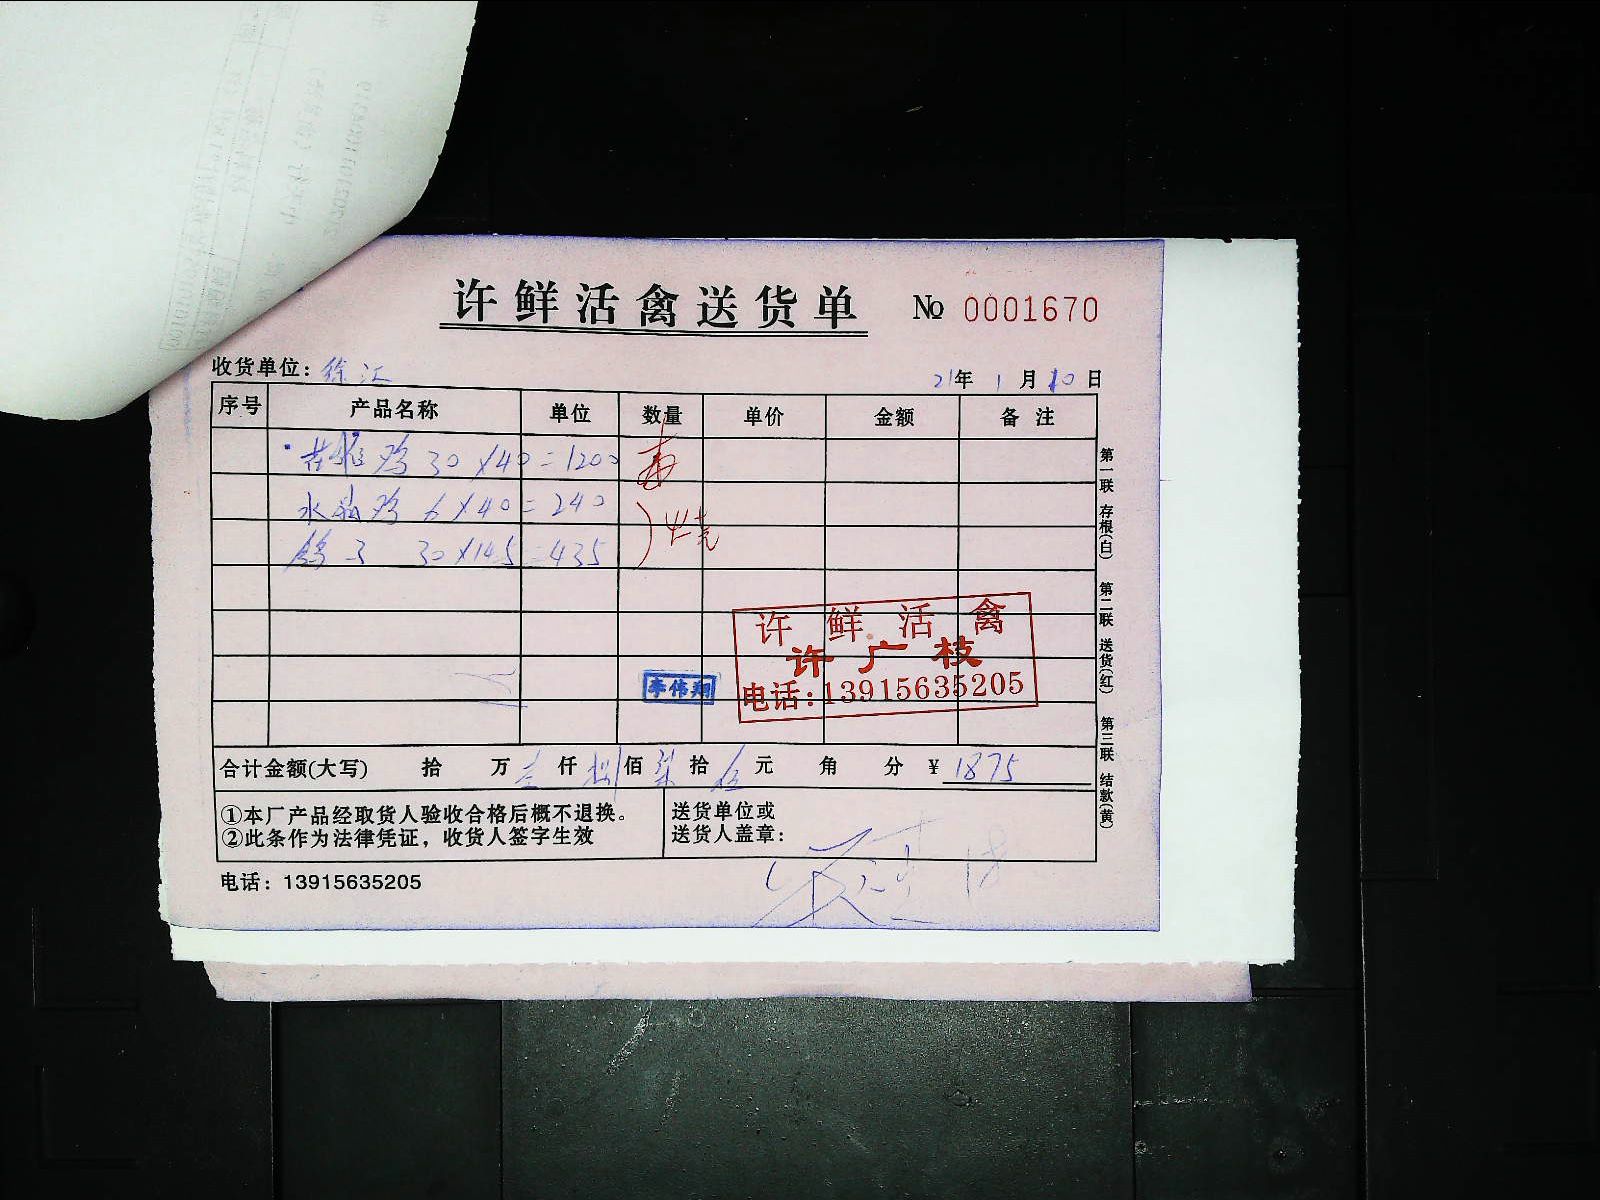 许鲜活禽送货单 No 0001670
收货单位: 徐汇 21年 1月 10日
序号 产品名称 单位 数量 单价 金额 备注
鸡 30×40=1200
水 鸡 6×40=240
鸽子 30×145=435
许鲜活禽
许广枝
电话:13915635205
李伟翔
合计金额(大写) 拾 万 壹仟 捌佰 柒拾 伍元 角 分 ¥ 1875
①本厂产品经取货人验收合格后概不退换。
②此条作为法律凭证，收货人签字生效
送货单位或
送货人盖章:
电话: 13915635205
第一联 存根(白) 第二联 送货(红) 第三联 结款(黄)